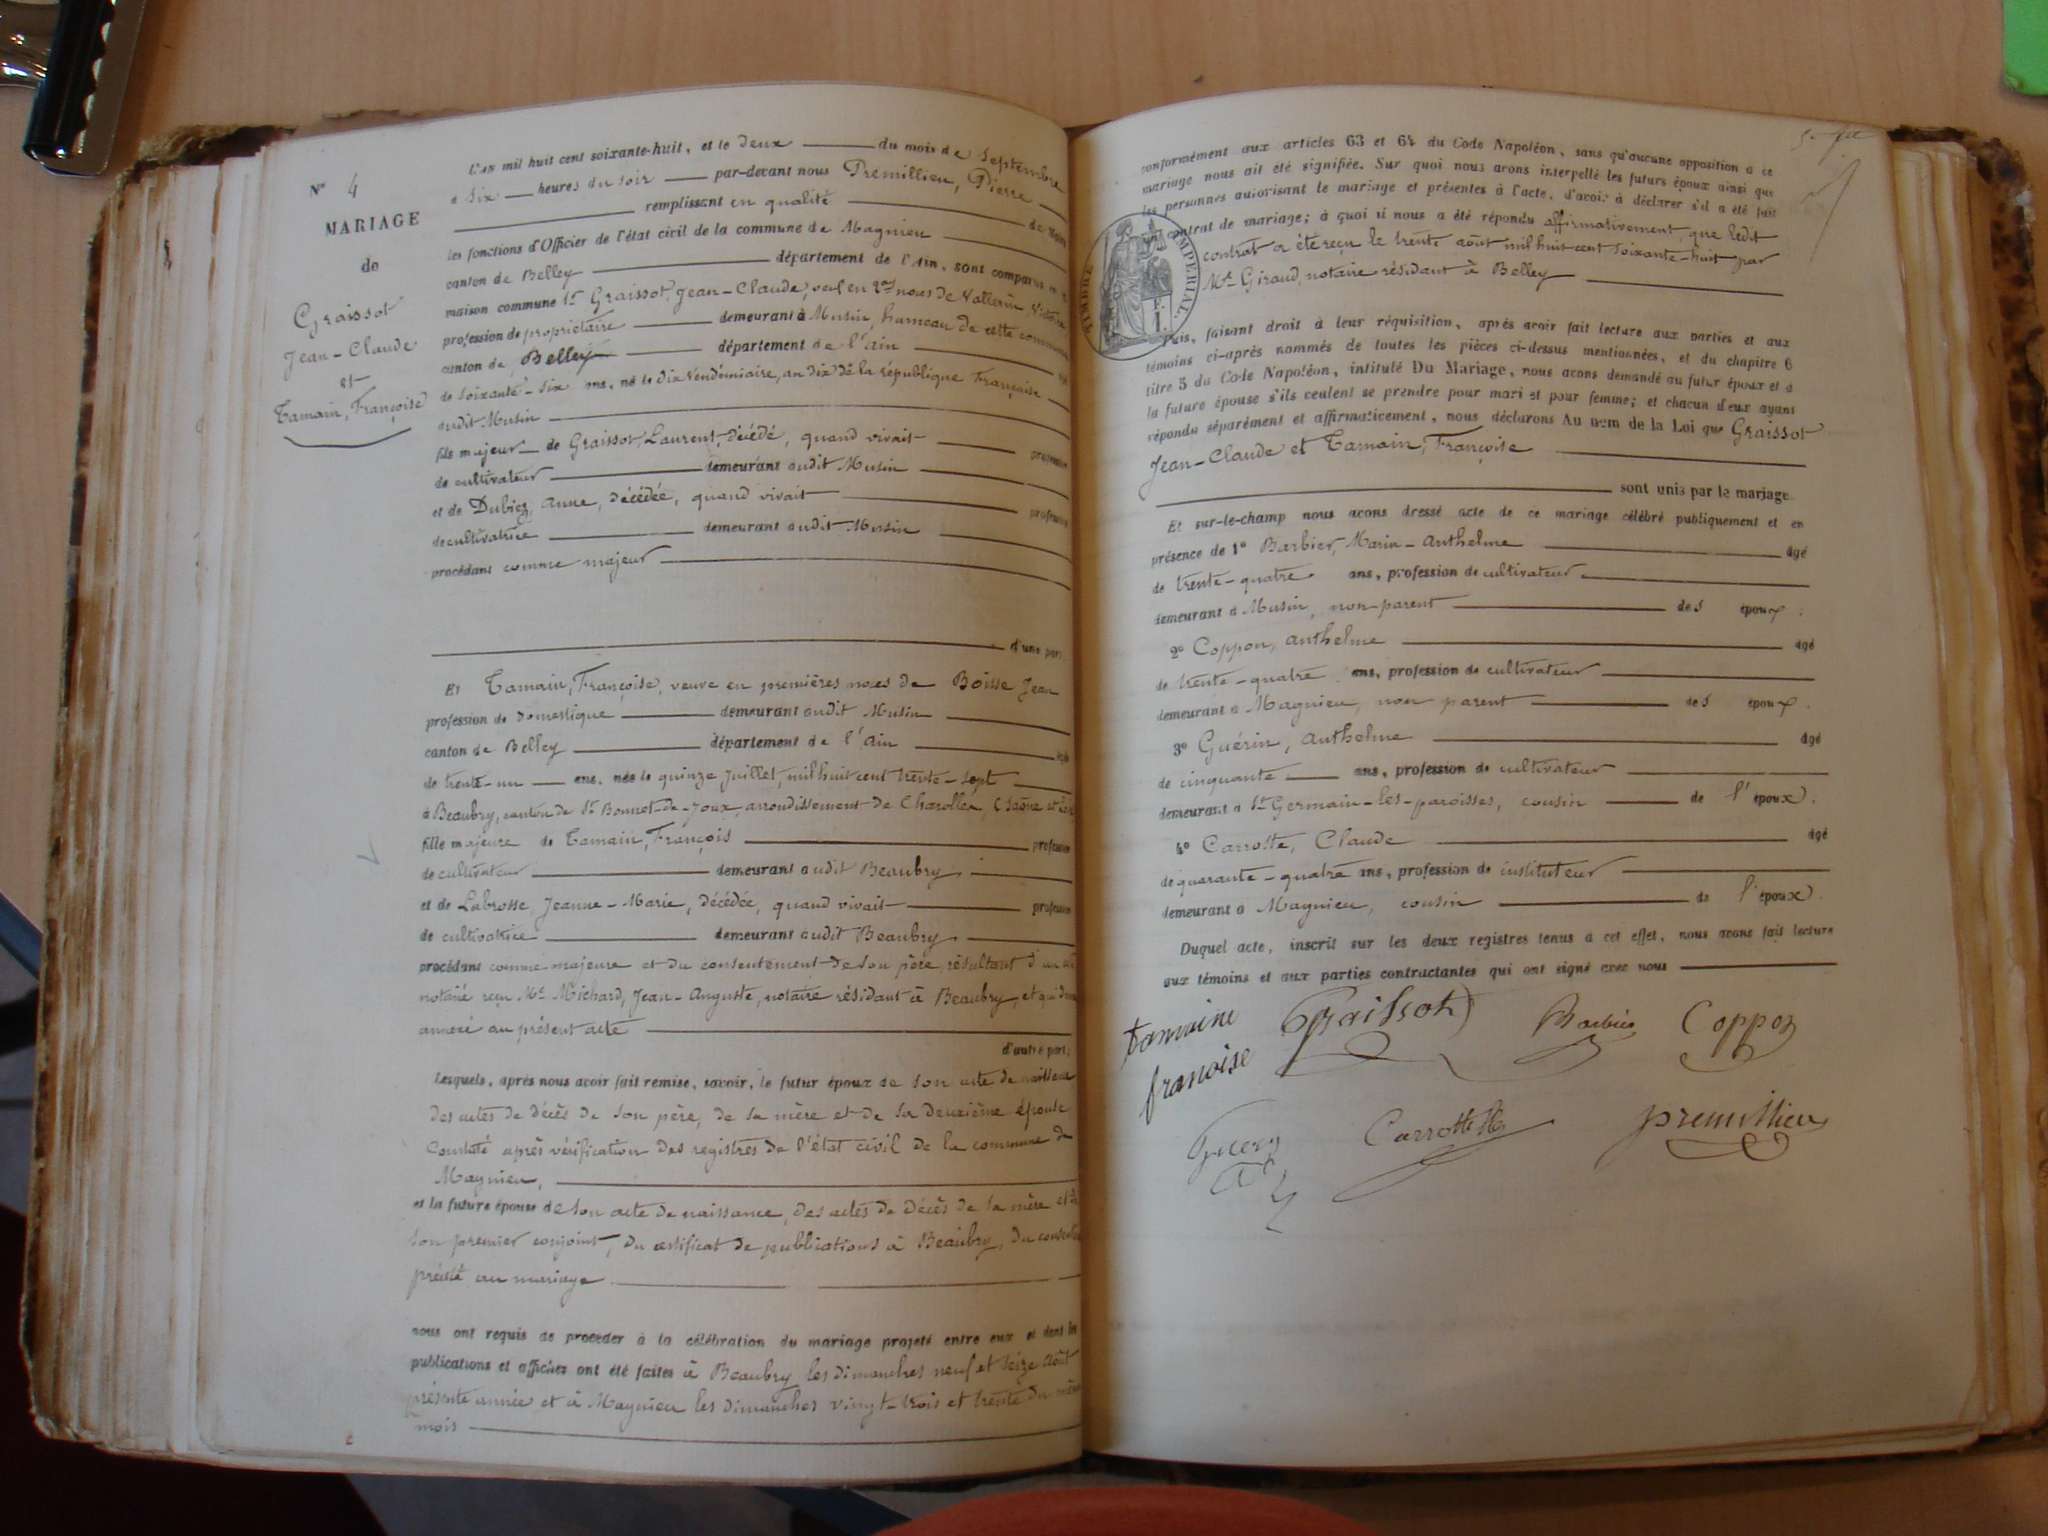 N° 4
MARIAGE
de
Graissot
Jean-Claude
et
Tamain, Françoise
L'an mil huit cent soixante-huit, et le deux du mois de Septembre
à six heures du soir par-devant nous Premillieu, Pierre
remplissant en qualité de Maire
les fonctions d'Officier de l'état civil de la commune de Magnieu
canton de Belley département de l'Ain, sont comparus en la
maison commune 1° Graissot, Jean-Claude, veuf en 2es noces de Vallerin
profession de propriétaire demeurant à Musin, hameau de cette commune
canton de Belley département de l'Ain
de soixante-six ans, né le dix Vendémiaire, an dix de la république Française
audit Musin
fils majeur de Graissot, Laurent, décédé, quand vivait profession
de cultivateur demeurant audit Musin
et de Dubiez, Anne, décédée, quand vivait profession
de cultivatrice demeurant audit Musin
procédant comme majeur
d'une part;
Et Tamain, Françoise, veuve en premières noces de Boisse Jean
profession de domestique demeurant audit Musin
canton de Belley département de l'Ain
de trente-un ans, née le quinze Juillet, mil huit cent trente-sept
à Beaubry, canton de St Bonnet-de-Joux, arrondissement de Charolles, (Saône et
fille majeure de Tamain, François profession
de cultivateur demeurant audit Beaubry,
et de Labrosse, Jeanne-Marie, décédée, quand vivait profession
de cultivatrice demeurant audit Beaubry,
procédant comme majeure et du consentement de son père, résultant d'un acte
notarié reçu Me Michard, Jean-Auguste, notaire résidant à Beaubry, et qui
annexé au présent acte
d'autre part;
Lesquels, après nous avoir fait remise, savoir, le futur époux de son acte de naissance
des actes de décès de son père, de sa mère et de sa deuxième épouse
Constaté après vérification des registres de l'état civil de la commune de
Magnieu,
et la future épouse de son acte de naissance, des actes de décès de sa mère et de
son premier conjoint, du certificat de publications à Beaubry, du
précité au mariage
nous ont requis de procéder à la célébration du mariage projeté entre eux et dont les
publications et affiches ont été faites à Beaubry les dimanches neuf et seize Août
présente année et à Magnieu les dimanches vingt-trois et trente du même
mois
conformément aux articles 63 et 64 du Code Napoléon, sans qu'aucune opposition à ce
mariage nous ait été signifiée. Sur quoi nous avons interpellé les futurs époux ainsi que
les personnes autorisant le mariage et présentes à l'acte, d'avoir à déclarer s'il a été fait
un contrat de mariage; à quoi il nous a été répondu affirmativement, que ledit
contrat a été reçu le trente août mil huit cent soixante-huit par
Me Giraud, notaire résidant à Belley
TIMBRE IMPERIAL
F.
1.
Puis, faisant droit à leur réquisition, après avoir fait lecture aux parties et aux
témoins ci-après nommés de toutes les pièces ci-dessus mentionnées, et du chapitre 6
titre 5 du Code Napoléon, intitulé Du Mariage, nous avons demandé au futur époux et à
la future épouse s'ils veulent se prendre pour mari et pour femme; et chacun d'eux ayant
répondu séparément et affirmativement, nous déclarons Au nom de la Loi que Graissot
Jean-Claude et Tamain, Françoise
sont unis par le mariage
Et sur-le-champ nous avons dressé acte de ce mariage célébré publiquement et en
présence de 1° Barbier, Marin-Anthelme âgé
de trente-quatre ans, profession de cultivateur
demeurant à Musin, non-parent des époux.
2° Coppon, Anthelme âgé
de trente-quatre ans, profession de cultivateur
demeurant à Magnieu, non parent des époux.
3° Guérin, Anthelme âgé
de cinquante ans, profession de cultivateur
demeurant à St Germain-les-paroisses, cousin de l'époux.
4° Carrotte, Claude âgé
de quarante-quatre ans, profession de instituteur
demeurant à Magnieu, cousin de l'époux.
Duquel acte, inscrit sur les deux registres tenus à cet effet, nous avons fait lecture
aux témoins et aux parties contractantes qui ont signé avec nous
tamaine
franoise
Graissot
Barbier
Coppon
Carrotte
premillieu